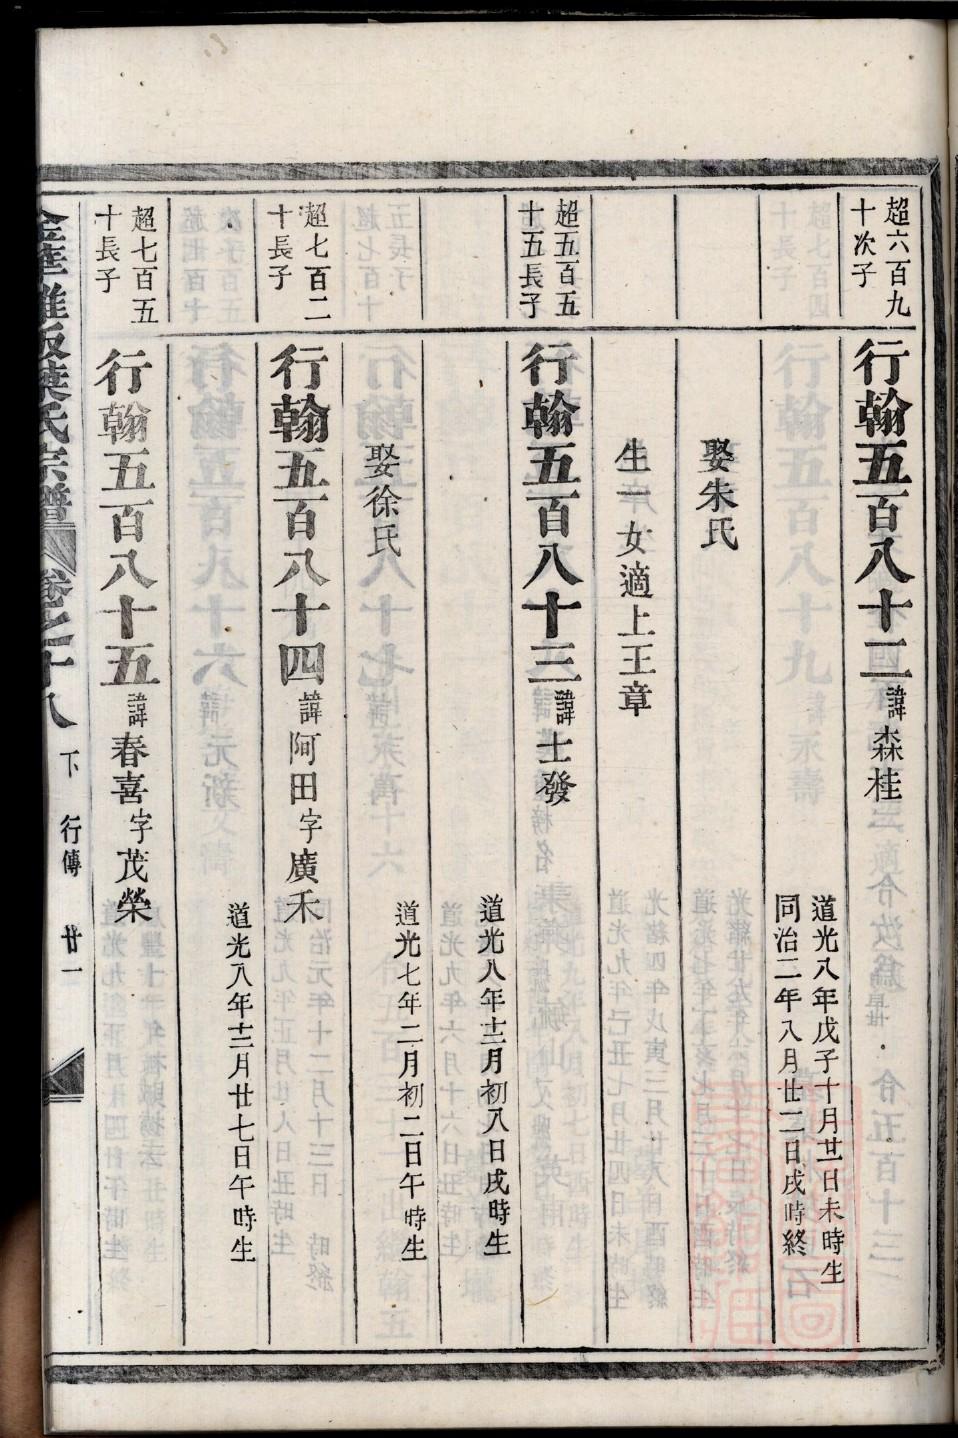 超六百九
十次子
行翰五百八十二諱森桂
道光八年戊子十月廿一日未時生
同治二年八月廿一日戌時終
娶朱氏
生一女適上王章
超五百五
十五長子
行翰五百八十三諱士發
道光八年十二月初八日戌時生
道光七年二月初二日午時生
娶徐氏
超七百二
十長子
行翰五百八十四諱阿田字廣禾
道光八年十二月廿七日午時生
超七百五
十長子
行翰五百八十五諱春喜字茂榮
葉氏宗譜 卷之十八 下 行傳 廿一